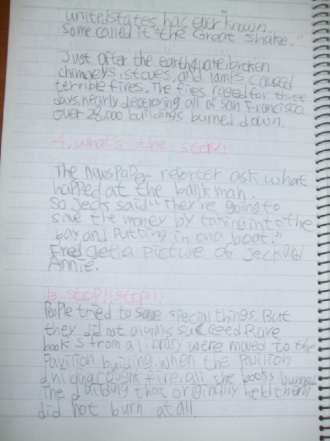 united states has ever known.
some called it the Great Shake."
Just after the earthquake, broken
chimneys, stoves, and lamps caused
terrible fires. The fires raged for three
days, nearly destroying all of San Francisco.
over 28,000 buildings burned down.
4. what's the story?
The nuwspaper reporter ask what
happed at the bank man.
So Jeck said "They're going to
save the money by taking into the
bay and putting in on a boat."
Fred get a picture of Jeck and
Annie.
5. Stop! Stop!!
People tried to save special things. But
they did not always succeed
books from a library were moved to the
Pavilion building. when the pavilion
building cought fire. all the books burned
The building that originally held them
did not burn at all.